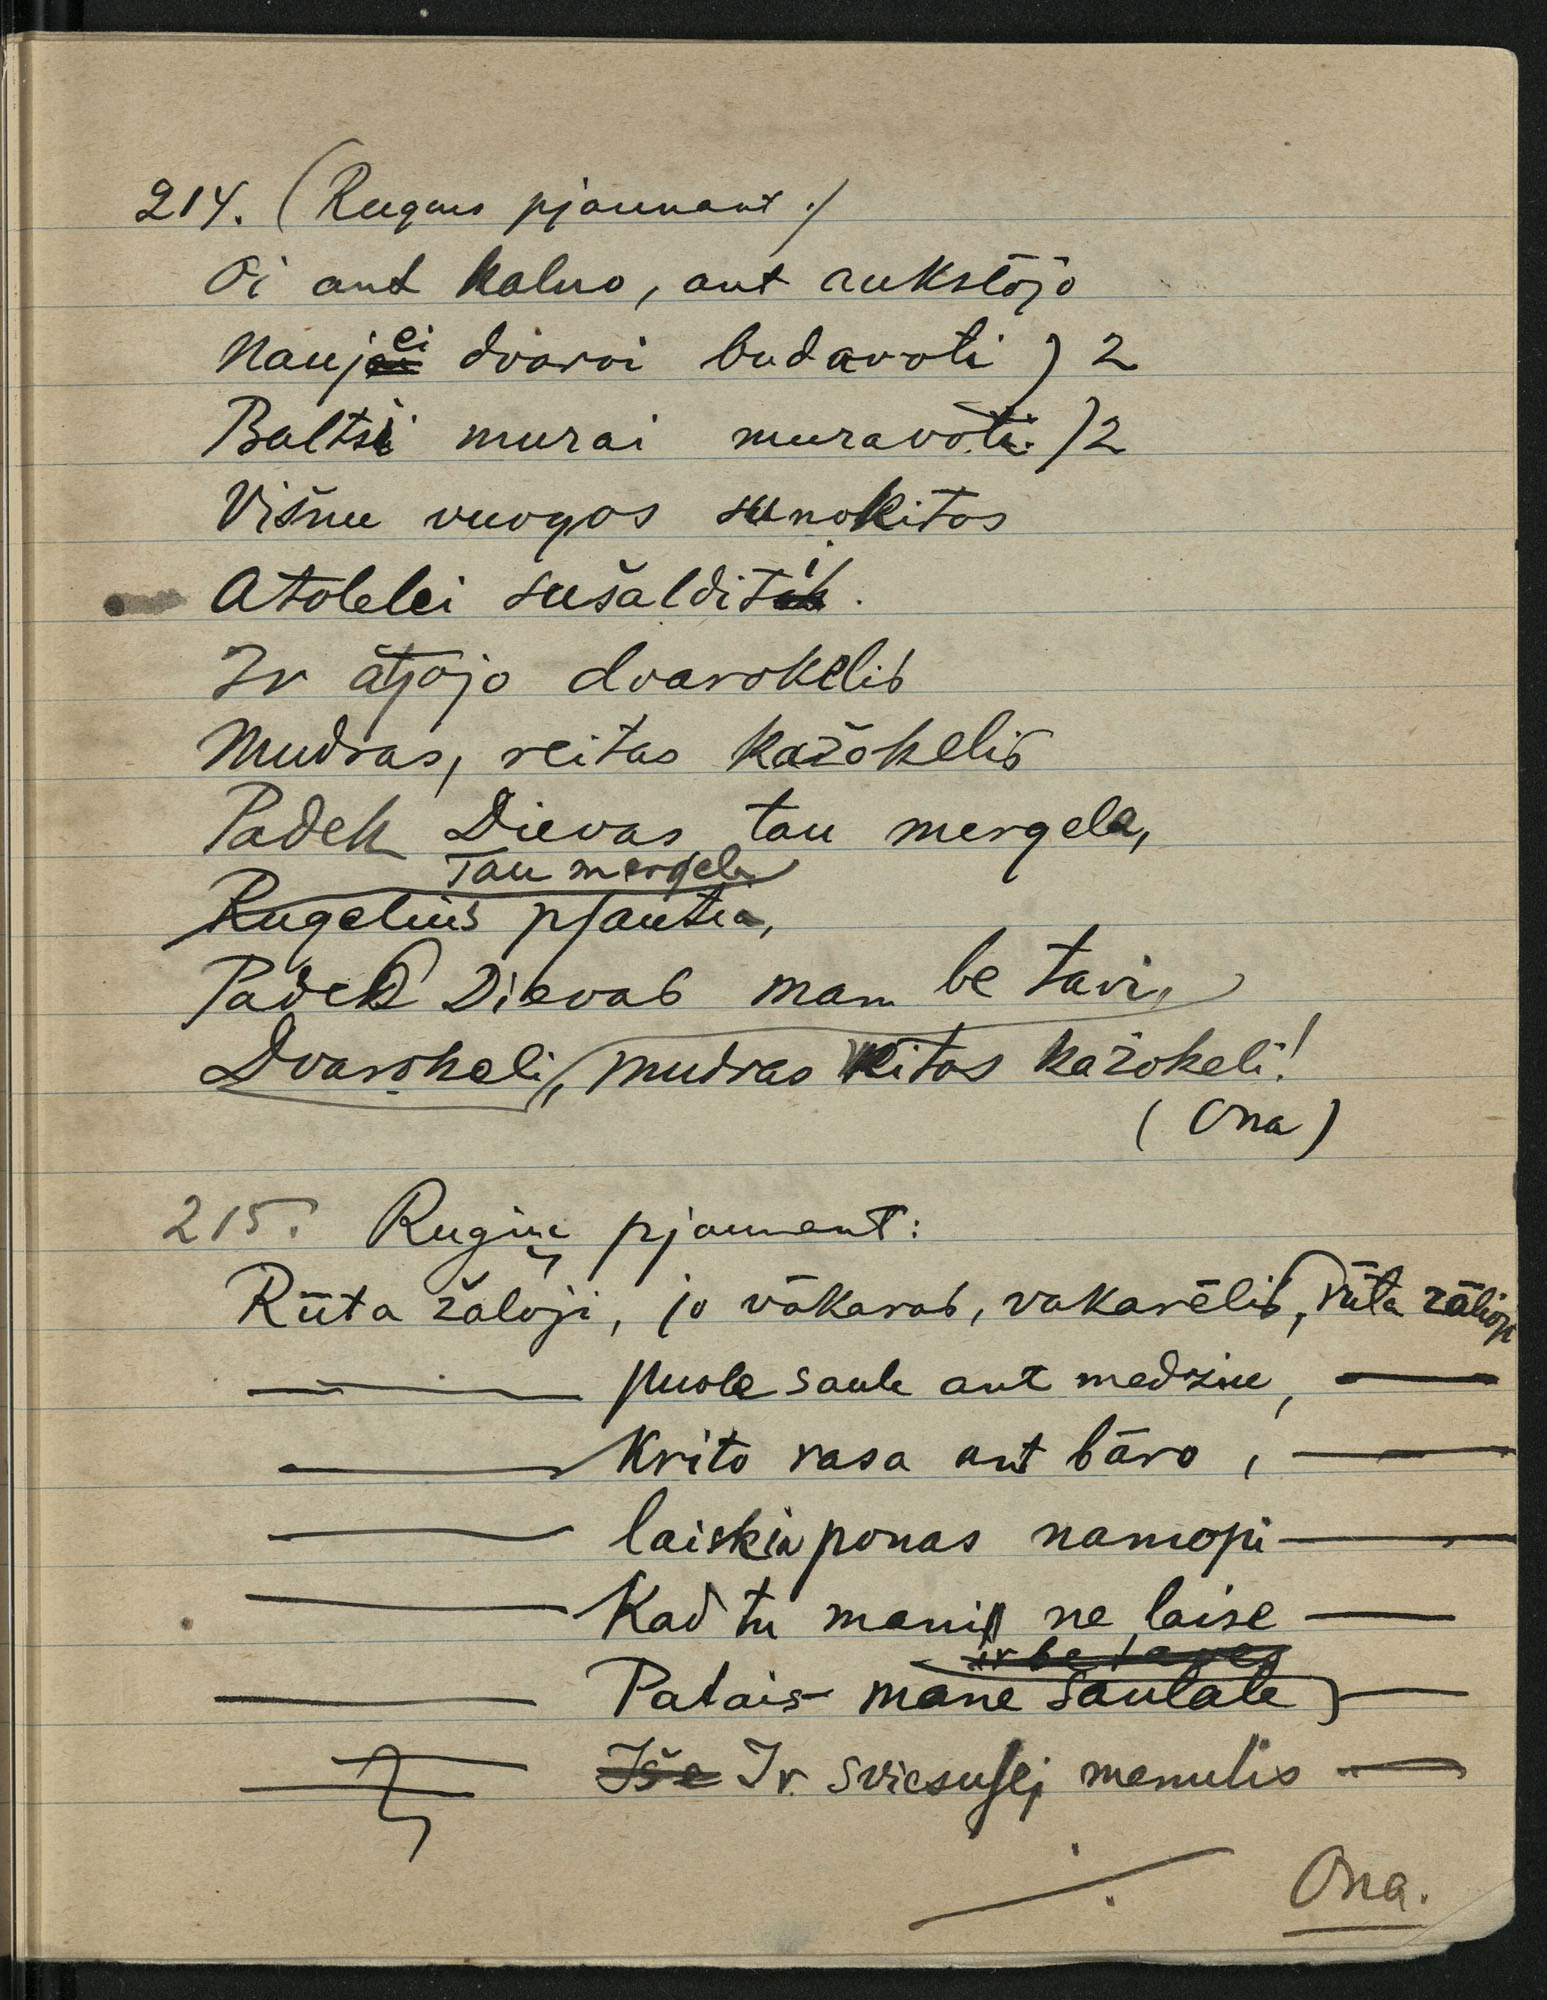 214. (Rugius pjaunant.)
Oi ant kalno, ant aukstōjo
Naujei dvarai budavoti ) 2
Baltsi murai muravoti. )2
Višnu vuogos sunokitos
Atolelei sušalditi.
Ir atjojo dvarokelis
Mudras, reitas kažokelis
Padek Dievas tau mergela,
Tau mergela
Rugelius pjautia,
Padek Dievas mam be tavi,
Dvarokeli, mudras Reitas kažokeli!
(Ona)
215. Rugių pjaunent:
Rūta žaloji, jo vākaras, vakarēlis, rūta zālioji
— puole saule ant medziu, —
— Krito rasa ant bāro, —
— laiskia ponas namopi —
— Kad tu manis ne laise —
ir be taves
— Palais mane saulale —
— Iše Ir sviesusej menulis —
Ona.